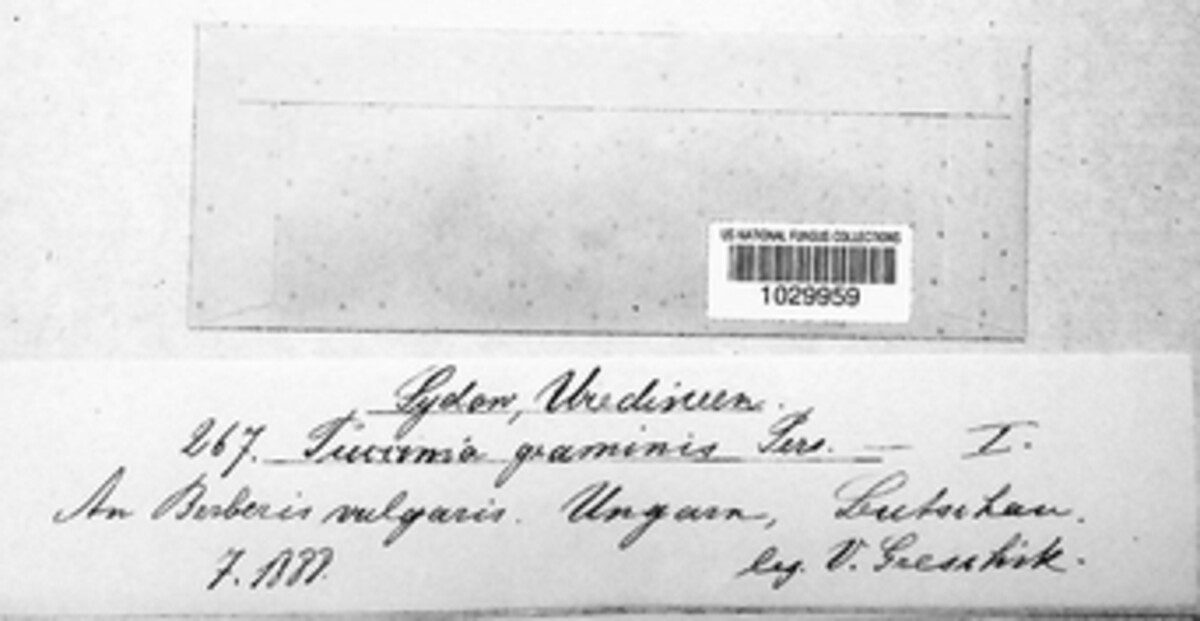 US NATIONAL FUNGUS COLLECTIONS
1029959
Sydow, Uredineen.
267. Puccinia graminis Pers. — I.
An Berberis vulgaris. Ungarn, Leutschau.
7. 1888. leg. V. Greschik.